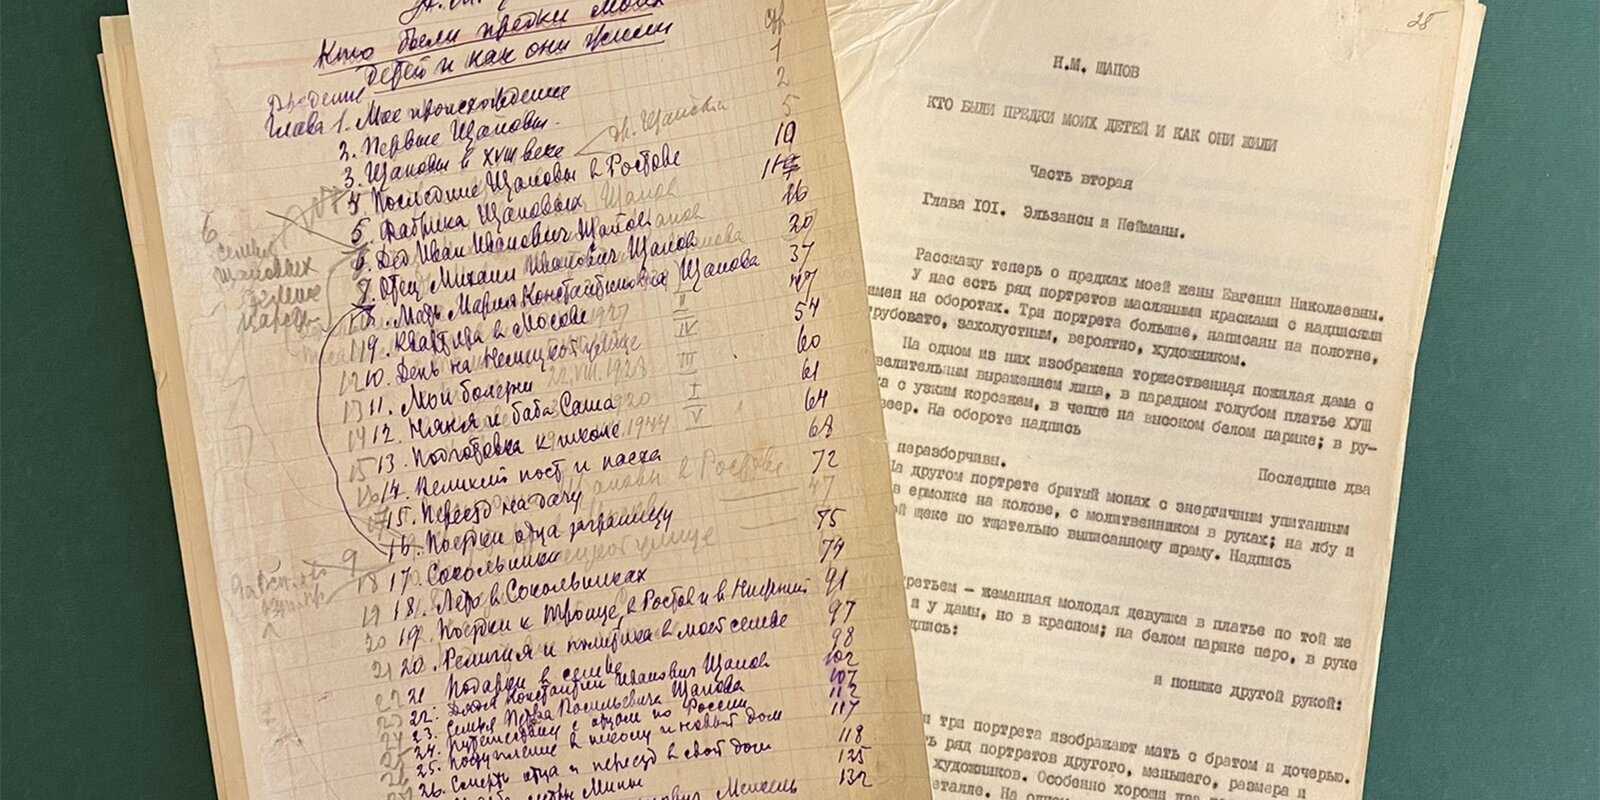 Кто были предки моих
детей и как они жили
стр
Введение 1
Глава 1. Мое происхождение 2
2. Первые Щаповы. 5
3. Щаповы в XVIII веке 10
4. Последние Щаповы в Ростове
5. Фабрика Щаповых 16
6. Дед Иван Иванович Щапов 20
7. Отец Михаил Иванович Щапов 37
8. Мать Мария Константиновна Щапова 47
9. Квартира в Москве 54
10. День на Немецкой улице 60
11. Мои болезни 61
12. Няня и баба Саша 64
13. Подготовка к школе 68
14. Великий пост и пасха 72
15. Переезд на дачу
16. Поездки отца заграницу 75
17. Сокольники 79
18. Лето в Сокольниках 91
19. Поездки к Троице, в Ростов и в Нижний 97
20. Религия и политика в моей семье 98
21. Подарки в семье 102
22. Дядя Константин Иванович Щапов 107
23. Семья Петра Васильевича Щапова 112
24. Путешествие с отцом по России 117
25. Поступление в школу и новый дом 118
26. Смерть отца и переезд в свой дом 125
132
6
семья
Щаповых
28
Н.М. ЩАПОВ
КТО БЫЛИ ПРЕДКИ МОИХ ДЕТЕЙ И КАК ОНИ ЖИЛИ
Часть вторая
Глава IOI. Эльзансы и Нейманы.
Расскажу теперь о предках моей жены Евгении Николаевны.
У нас есть ряд портретов масляными красками с надписями
имен на оборотах. Три портрета большие, написаны на полотне,
грубовато, захолустным, вероятно, художником.
На одном из них изображена торжественная пожилая дама с
велительным выражением лица, в парадном голубом платье ХУШ
ка с узким корсажем, в чепце на высоком белом парике; в ру-
веер. На обороте надпись
Последние два
неразборчивы.
На другом портрете бритый монах с энергичным упитанным
в ермолке на колове, с молитвенником в руках; на лбу и
ой щеке по тщательно выписанному шраму. Надпись
ретьем - жеманная молодая девушка в платье по той же
и у дамы, но в красном; на белом парике перо, в руке
дпись:
и пониже другой рукой:
и три портрета изображают мать с братом и дочерью.
ть ряд портретов другого, меньшего, размера и
художников. Особенно хороши два
еталле. На одном